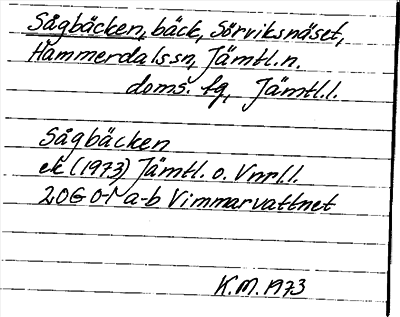 Sågbäcken, bäck, Sörviksnäset,
Hammerdals sn, Jämtl. n.
doms. fg, Jämtl. l.
Sågbäcken
ek (1973) Jämtl. o. Vnrl. l.
20G 0-1 a-b Vimmarvattnet
K.M. 1973